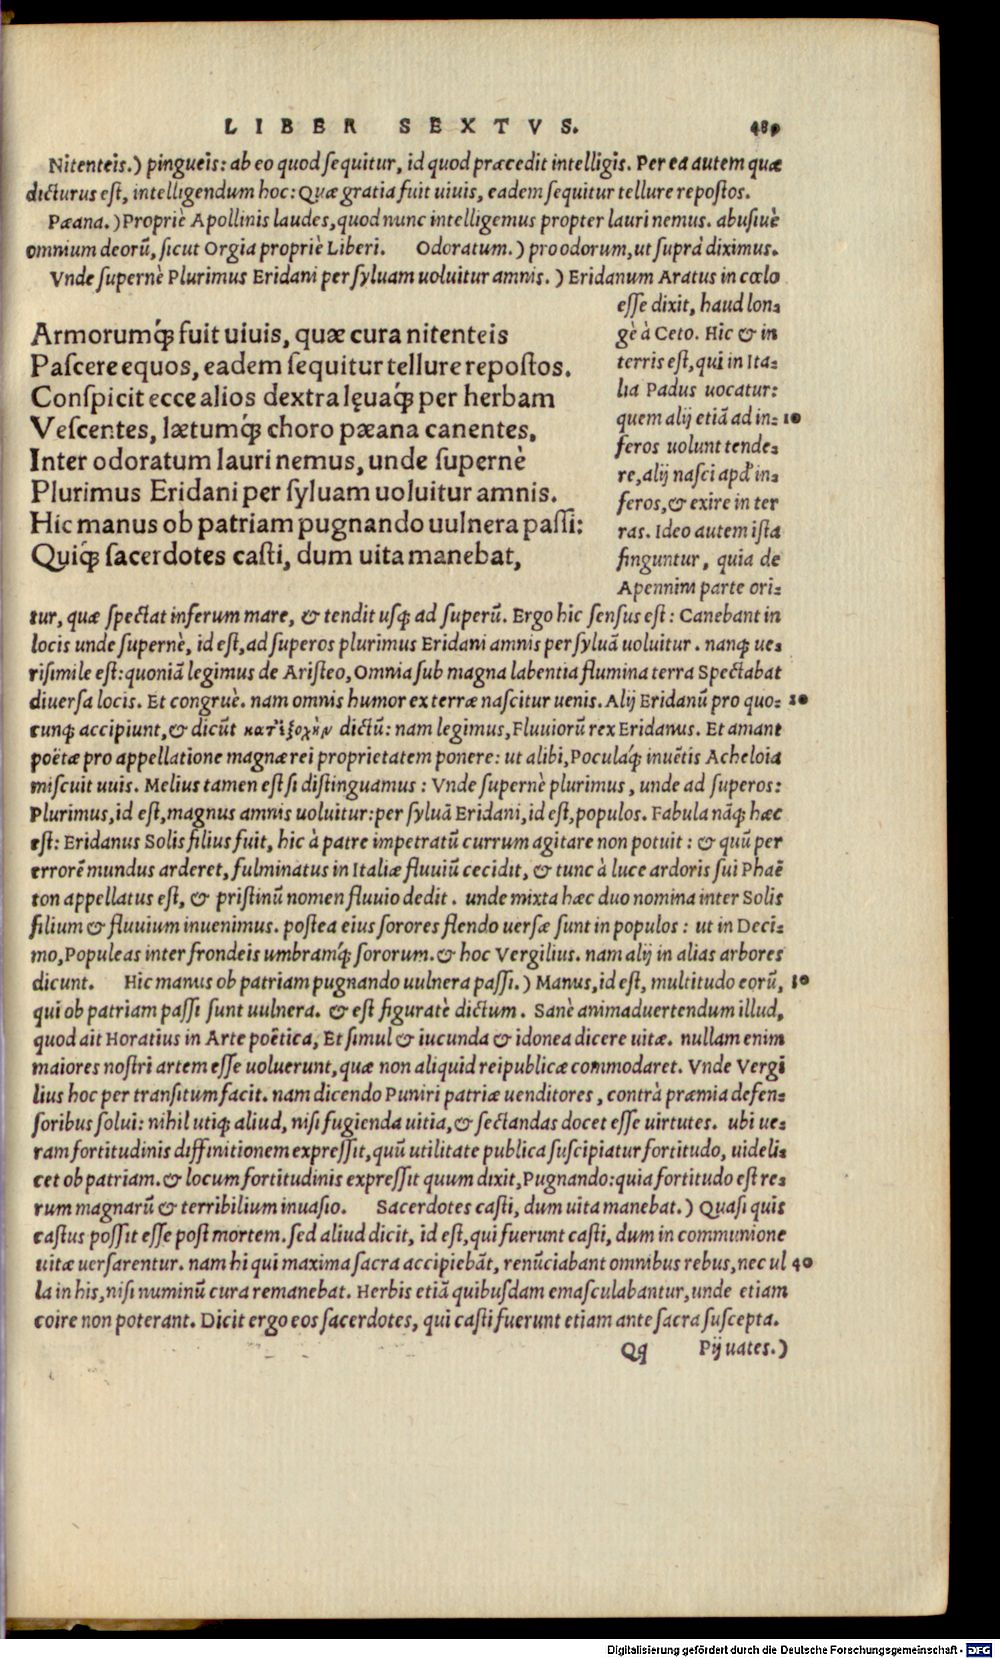 LIBER SEXTVS. 489
Nitenteis.) pingueis: ab eo quod sequitur, id quod præcedit intelligis. Per ea autem quæ
dicturus est, intelligendum hoc: Quæ gratia fuit uiuis, eadem sequitur tellure repostos.
Pæana.) Propriè Apollinis laudes, quod nunc intelligemus propter lauri nemus. abusiuè
omnium deorũ, sicut Orgia propriè Liberi. Odoratum.) pro odorum, ut suprà diximus.
Vnde supernè Plurimus Eridani per syluam uoluitur amnis.) Eridanum Aratus in cœlo
Armorumq́; fuit uiuis, quæ cura nitenteis
Pascere equos, eadem sequitur tellure repostos.
Conspicit ecce alios dextra lęuaq́; per herbam
Vescentes, lætumq́; choro pæana canentes,
Inter odoratum lauri nemus, unde supernè
Plurimus Eridani per syluam uoluitur amnis.
Hic manus ob patriam pugnando uulnera passi:
Quiq́; sacerdotes casti, dum uita manebat,
esse dixit, haud lon-
gè à Ceto. Hic & in
terris est, qui in Ita-
lia Padus uocatur:
quem alij etiã ad in- 10
feros uolunt tende-
re, alij nasci apđ in-
feros, & exire in ter
ras. Ideo autem ista
finguntur, quia de
Apennini parte ori-
tur, quæ spectat inferum mare, & tendit usq; ad superũ. Ergo hic sensus est: Canebant in
locis unde supernè, id est, ad superos plurimus Eridani amnis per syluã uoluitur. nanq; ue-
risimile est: quoniã legimus de Aristeo, Omnia sub magna labentia flumina terra Spectabat
diuersa locis. Et congruè. nam omnis humor ex terræ nascitur uenis. Alij Eridanũ pro quo- 20
cunq; accipiunt, & dicũt κατ᾽ἐξοχὴν dictũ: nam legimus, Fluuiorũ rex Eridanus. Et amant
poëtæ pro appellatione magnæ rei proprietatem ponere: ut alibi, Poculaq́; inuẽtis Acheloia
miscuit uuis. Melius tamen est si distinguamus: Vnde supernè plurimus, unde ad superos:
Plurimus, id est, magnus amnis uoluitur: per syluã Eridani, id est, populos. Fabula nãq; hæc
est: Eridanus Solis filius fuit, hic à patre impetratũ currum agitare non potuit: & quũ per
errorẽ mundus arderet, fulminatus in Italiæ fluuiũ cecidit, & tunc à luce ardoris sui Phaẽ
ton appellatus est, & pristinũ nomen fluuio dedit. unde mixta hæc duo nomina inter Solis
filium & fluuium inuenimus. postea eius sorores flendo uersæ sunt in populos: ut in Deci-
mo, Populeas inter frondeis umbramq́; sororum. & hoc Vergilius. nam alij in alias arbores
dicunt. Hic manus ob patriam pugnando uulnera passi.) Manus, id est, multitudo eorũ, 30
qui ob patriam passi sunt uulnera. & est figuratè dictum. Sanè animaduertendum illud,
quod ait Horatius in Arte poëtica, Et simul & iucunda & idonea dicere uitæ. nullam enim
maiores nostri artem esse uoluerunt, quæ non aliquid reipublicæ commodaret. Vnde Vergi
lius hoc per transitum facit. nam dicendo Puniri patriæ uenditores, contrà præmia defen-
soribus solui: nihil utiq; aliud, nisi fugienda uitia, & sectandas docet esse uirtutes. ubi ue-
ram fortitudinis diffinitionem expressit, quũ utilitate publica suscipiatur fortitudo, uideli-
cet ob patriam. & locum fortitudinis expressit quum dixit, Pugnando: quia fortitudo est re-
rum magnarũ & terribilium inuasio. Sacerdotes casti, dum uita manebat.) Quasi quis
castus possit esse post mortem. sed aliud dicit, id est, qui fuerunt casti, dum in communione
uitæ uersarentur. nam hi qui maxima sacra accipiebãt, renũciabant omnibus rebus, nec ul 40
la in his, nisi numinũ cura remanebat. Herbis etiã quibusdam emasculabantur, unde etiam
coire non poterant. Dicit ergo eos sacerdotes, qui casti fuerunt etiam ante sacra suscepta.
Qq Pij uates.)
Digitalisierung gefördert durch die Deutsche Forschungsgemeinschaft - DFG